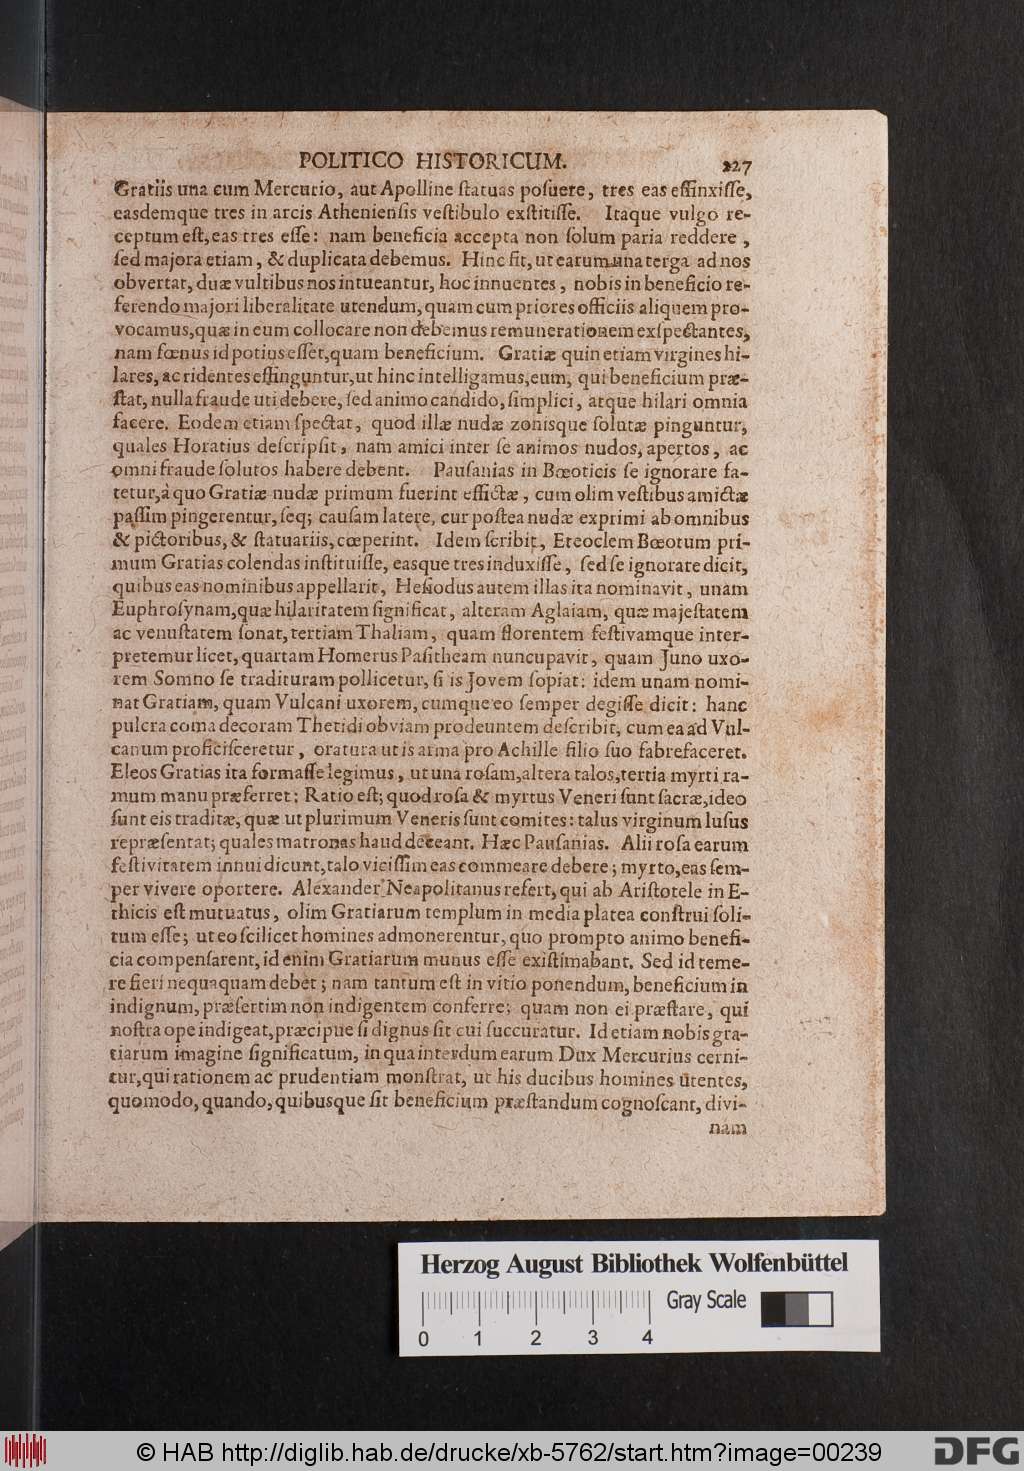 POLITICO HISTORICUM. 227
Gratiis una cum Mercurio, aut Apolline ſtatuas poſuere, tres eas effinxiſſe,
easdemque tres in arcis Athenienſis veſtibulo exſtitiſſe. Itaque vulgo re-
ceptum eſt, eas tres eſſe: nam beneficia accepta non ſolum paria reddere,
ſed majora etiam, & duplicata debemus. Hinc fit, ut earum una terga ad nos
obvertat, duæ vultibus nos intueantur, hoc innuentes, nobis in beneficio re-
ferendo majori liberalitate utendum, quam cum priores officiis aliquem pro-
vocamus, quæ in eum collocare non debemus remunerationem exſpectantes,
nam fœnus id potius eſſet, quam beneficium. Gratiæ quin etiam virgines hi-
lares, ac ridentes effinguntur, ut hinc intelligamus, eum, qui beneficium præ-
ſtat, nulla fraude uti debere, ſed animo candido, ſimplici, atque hilari omnia
facere. Eodem etiam ſpectat, quod illæ nudæ zonisque ſolutæ pinguntur,
quales Horatius deſcripſit, nam amici inter ſe animos nudos, apertos, ac
omni fraude ſolutos habere debent. Pauſanias in Bœoticis ſe ignorare fa-
tetur, à quo Gratiæ nudæ primum fuerint effictæ, cum olim veſtibus amictæ
paſſim pingerentur, ſeq; cauſam latere, cur poſtea nudæ exprimi ab omnibus
& pictoribus, & ſtatuariis, cœperint. Idem ſcribit, Eteoclem Bœotum pri-
mum Gratias colendas inſtituiſſe, easque tres induxiſſe, ſed ſe ignorare dicit,
quibus eas nominibus appellarit, Heſiodus autem illas ita nominavit, unam
Euphroſynam, quæ hilaritatem ſignificat, alteram Aglaiam, quæ majeſtatem
ac venuſtatem ſonat, tertiam Thaliam, quam florentem feſtivamque inter-
pretemur licet, quartam Homerus Paſitheam nuncupavit, quam Juno uxo-
rem Somno ſe tradituram pollicetur, ſi is Jovem ſopiat: idem unam nomi-
nat Gratiam, quam Vulcani uxorem, cumque eo ſemper degiſſe dicit: hanc
pulcra coma decoram Thetidi obviam prodeuntem deſcribit, cum ea ad Vul-
canum proficiſceretur, oratura ut is arma pro Achille filio ſuo fabrefaceret.
Eleos Gratias ita formaſſe legimus, ut una roſam, altera talos, tertia myrti ra-
mum manu præferret: Ratio eſt; quod roſa & myrtus Veneri ſunt ſacræ, ideo
ſunt eis traditæ, quæ ut plurimum Veneris ſunt comites: talus virginum luſus
repræſentat; quales matronas haud deceant. Hæc Pauſanias. Alii roſa earum
feſtivitatem innui dicunt, talo viciſſim eas commeare debere; myrto, eas ſem-
per vivere oportere. Alexander Neapolitanus refert, qui ab Ariſtotele in E-
thicis eſt mutuatus, olim Gratiarum templum in media platea conſtrui ſoli-
tum eſſe; ut eo ſcilicet homines admonerentur, quo prompto animo benefi-
cia compenſarent, id enim Gratiarum munus eſſe exiſtimabant. Sed id teme-
re fieri nequaquam debet; nam tantum eſt in vitio ponendum, beneficium in
indignum, præſertim non indigentem conferre; quam non ei præſtare, qui
noſtra ope indigeat, præcipue ſi dignus ſit cui ſuccuratur. Id etiam nobis gra-
tiarum imagine ſignificatum, in qua interdum earum Dux Mercurius cerni-
tur, qui rationem ac prudentiam monſtrat, ut his ducibus homines utentes,
quomodo, quando, quibusque ſit beneficium præſtandum cognoſcant, divi-
nam
Herzog August Bibliothek Wolfenbüttel
Gray Scale
0 1 2 3 4
© HAB http://diglib.hab.de/drucke/xb-5762/start.htm?image=00239
DFG